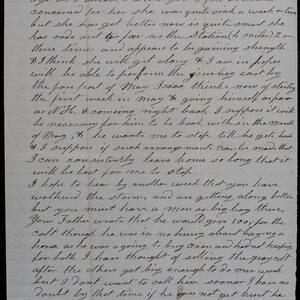 concerned for her she was quite sick a week or two
but she has got better now is quite smart she
has rode out so far as the Station (4 miles) 2 or
three times and appears to be gaining strength
& I think she will get along & I am in hopes
will be able to perform the journey east by
the fore part of May Isaac thinks now of starting
the first week in May & going himself as far
as N.Y. & coming right back I suppose it will
be necessary for him to be back in the month
of May, & he wants me to stop till he gets back
& I suppose if such arrangements can be made that
I can consistently leave home so long that it
will be best for me to stop.
I hope to hear by another week that you have
withered the storms and are getting along better
but you must have a man or big boy there
Your Father wrote that he would give 100, for the
colt though he was in no hurry about buying a
horse as he was a going to buy oxen and had not keeping
for both I have thought of selling the gray colt
after the others got big enough to do our work
but I dont want to sell him sooner I have no
doubt by that time if he does not get hurt he